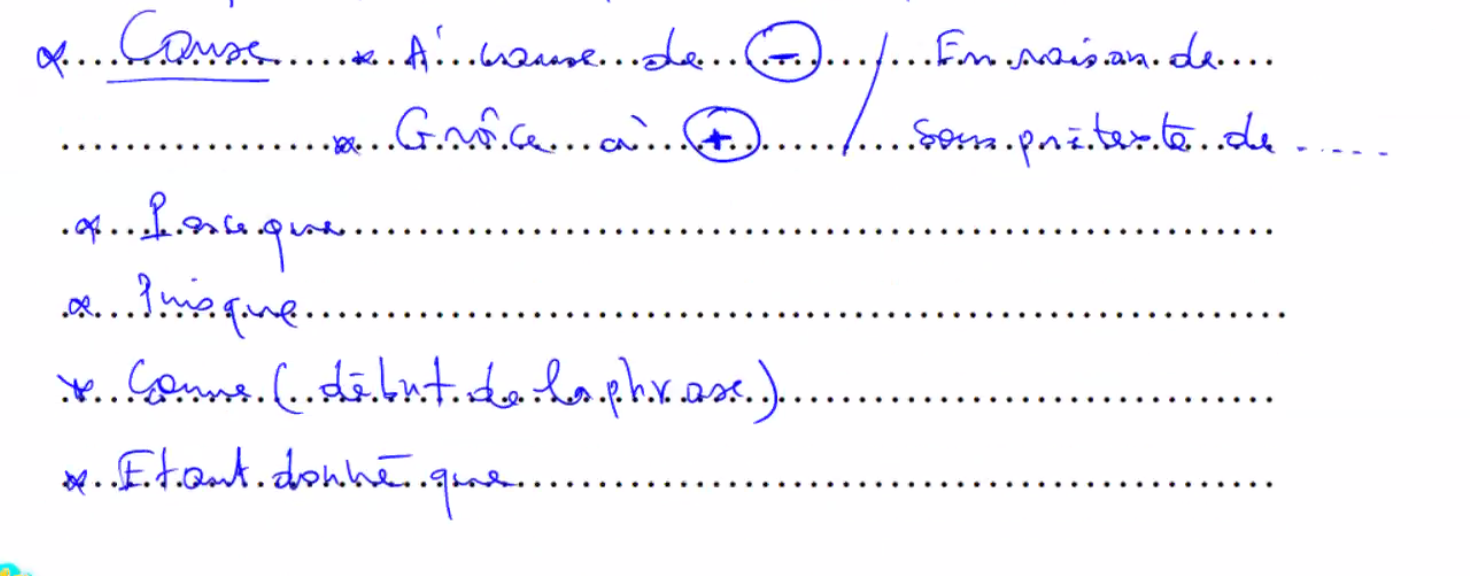 * Cause * A' cause de (-) / En raison de
* Grâce à (+) / sous prétexte de
* Parce que
* Puisque
* Comme (début de la phrase)
* Etant donné que